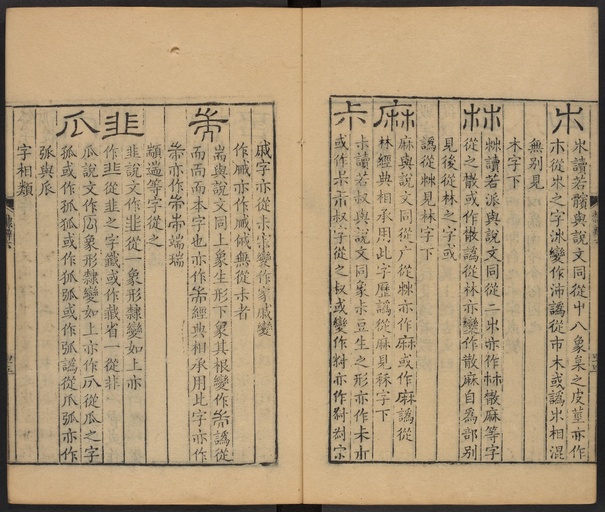 朩
朩讀若髕與說文同從屮八象枲之皮莖亦作
木從朩之字沝變作沛譌從市木或譌朩相混
無別見
木字下
𣏟
𣏟讀若派與說文同從二朩亦作林㪔麻等字
從之㪔或作散譌從林亦變作散麻自爲部別
見後從林之字或
譌從𣏟見林字下
麻
麻與說文同從广從𣏟亦作麻或作麻譌從
林經典相承用此字歷譌從麻見秝字下
尗
尗讀若叔與說文同象尗豆生之形亦作
或作 叔字從之叔或變作 亦作
戚字亦從尗 變作家戚變
作 亦作 無從尗者
耑
耑與說文同上象生形下象其根變作耑譌從
而而而本字也亦作耑經典相承用此字亦作
耑亦作 端瑞
顓遄等字從之
韭
韭說文作韭從一象形隸變如上亦
作韭從韭之字籤或作 省一從非
瓜
瓜說文作 象形隸變如上亦作 從瓜之字
孤或作孤狐或作狐弧或作弧譌從爪弧亦作
弧與𠂢
字相類